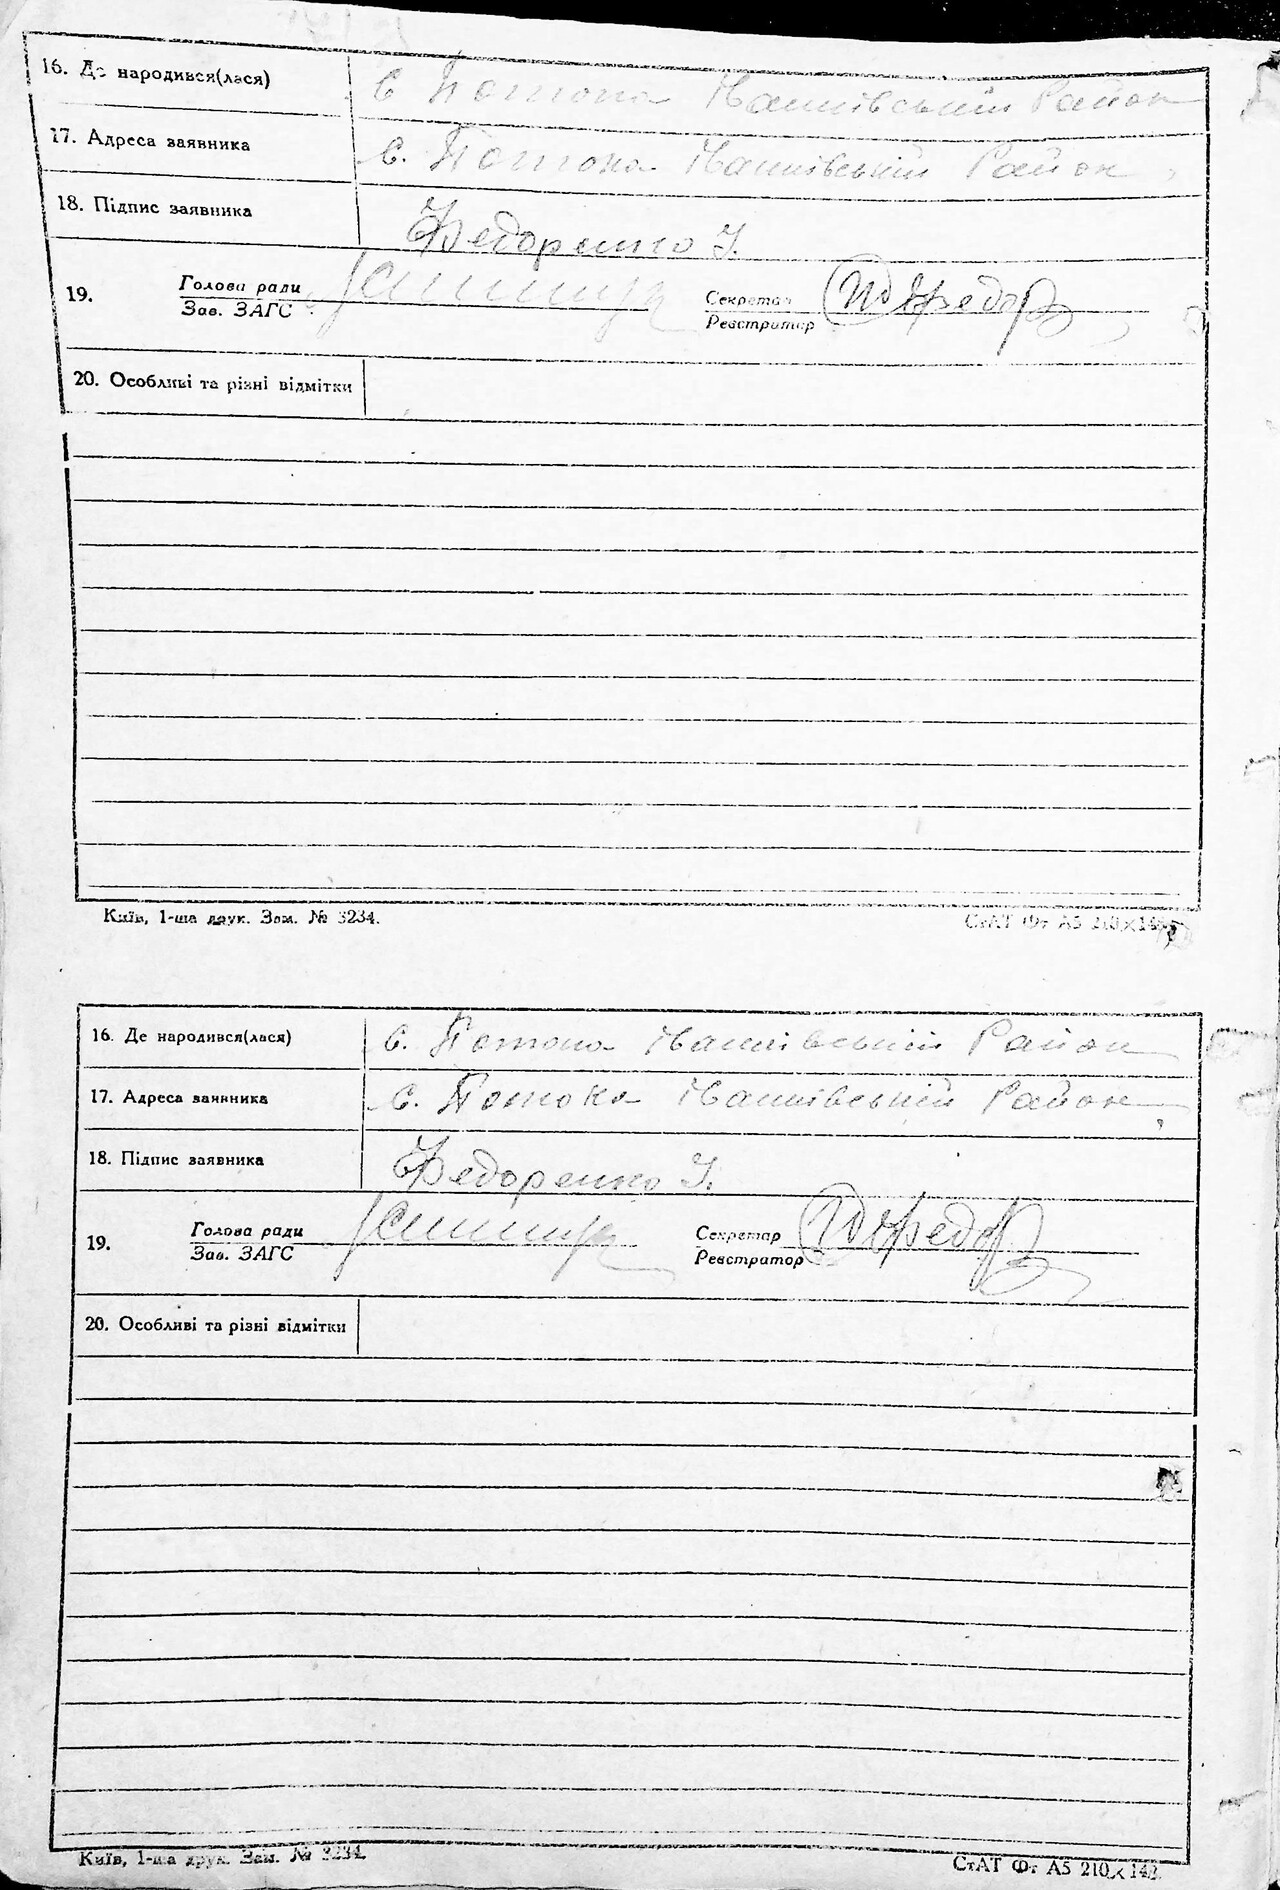 16. Де народився(лася) с Потока Машівський Район
17. Адреса заявника с. Потока Машівський Район,
18. Підпис заявника Федоренко І.
19. Голова ради Секретар
Зав. ЗАГС Реєстратор
20. Особливі та різні відмітки
Київ, 1-ша друк. Зам. № 3234. СтАТ Фт А5 210×148
16. Де народився(лася) с. Потока Машівський Район
17. Адреса заявника с. Потока Машівський Район,
18. Підпис заявника Федоренко І.
19. Голова ради Секретар
Зав. ЗАГС Реєстратор
20. Особливі та різні відмітки
Київ, 1-ша друк. Зам. № 3234. СтАТ Фт А5 210×148